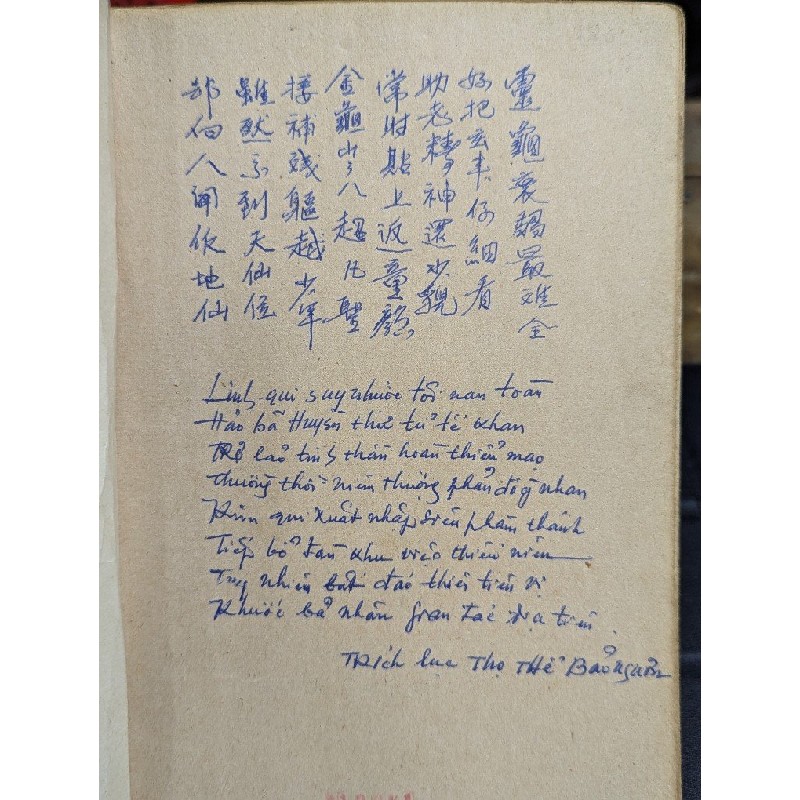 靈龜衰弱最难全
好把玄书仔細看
助老精神還少貌
常时貼上返童顏
金龜出入超凡聖
接補残軀越少年
雖然不到天仙位
却向人間作地仙
Linh qui suy nhước tối nan toàn
Hảo bã Huyền thư tử tế khan
Trợ lão tinh thần hoàn thiểu mạo
Thường thời niêm thượng phản đồng nhan
Kim qui xuất nhập siêu phàm thánh
Tiếp bổ tàn khu việt thiếu niên
Tuy nhiên bất đáo thiên tiên vị
Khước bả nhân gian tác địa tiên.
Trích lục Thọ Thế Bảo nguơn